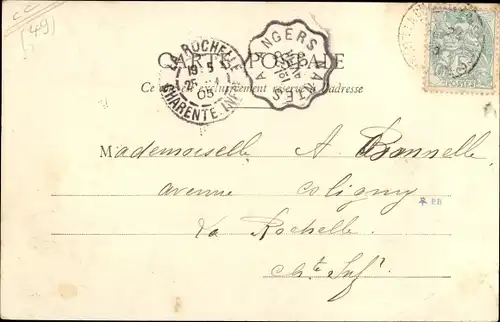 (49)
CARTE POSTALE
Ce côté est exclusivement réservé à l'adresse
LA ROCHELLE
19
25
05
CHARENTE INF
ANGERS A NANTES
POSTES
Mademoiselle A. Bonnelle
avenue Coligny
P.B
La Rochelle
Chte Infre